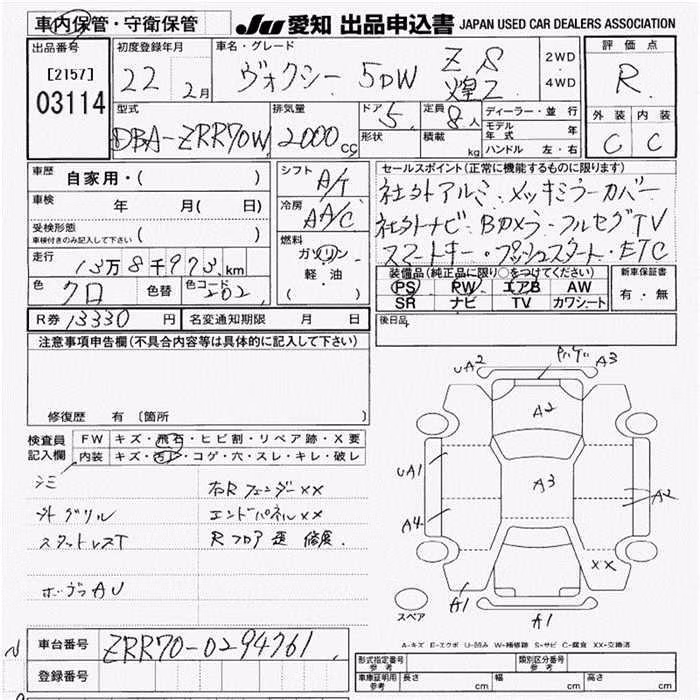 車内保管・守衛保管
JU 愛知 出品申込書 JAPAN USED CAR DEALERS ASSOCIATION
出品番号 [2157] 03114
初度登録年月 22 2月
車名・グレード ヴォクシー 5DW ZS 煌Z
2WD
4WD
評価点 R
外装 内装
C C
型式 DBA-ZRR70W
排気量 2000cc
ドア 5
形状
定員 8人
積載 kg
ディーラー・並行
モデル年式 年
ハンドル 左・右
車歴 自家用・( )
車検 年 月( 日)
受検形態 車検付きのみ記入して下さい ( )
走行 13万8千973km
色 クロ 色替 色コード 202
シフト A/T
冷房 AA/C
燃料 ガソリン
軽・油
( )
セールスポイント(正常に機能するものに限ります)
社外アルミ・メッキミラーカバー
社外ナビ・Bカメラ・フルセグTV
スマートキー・プッシュスタート・ETC
装備品(純正品に限り○をつけてください)
PS PW エアB AW
SR ナビ TV カワシート
新車保証書
有・無
R券 13330円 名変通知期限 月 日
後日品
注意事項申告欄(不具合内容等は具体的に記入して下さい)
修復歴 有 〔箇所 〕
検査員記入欄
FW キズ・飛石・ヒビ割・リペア跡・X要
内装 キズ・汚れ・コゲ・穴・スレ・キレ・破レ
シミ
右Rフェンダーxx
外グリル
エンドパネルxx
スタットレスT
Rフロア 修復.
AU
UA2 A3
A2
UA1 A3 A2
A4
xx
A1 A1
スペア
A-キズ E-エクボ U-凹み W-補修跡 S-サビ C-腐食 XX-交換済
車台番号 ZRR70-0294761
登録番号
形式指定番号 参考 類別区分番号 参考
車庫証明用 参考 長さ cm 幅 cm 高さ cm